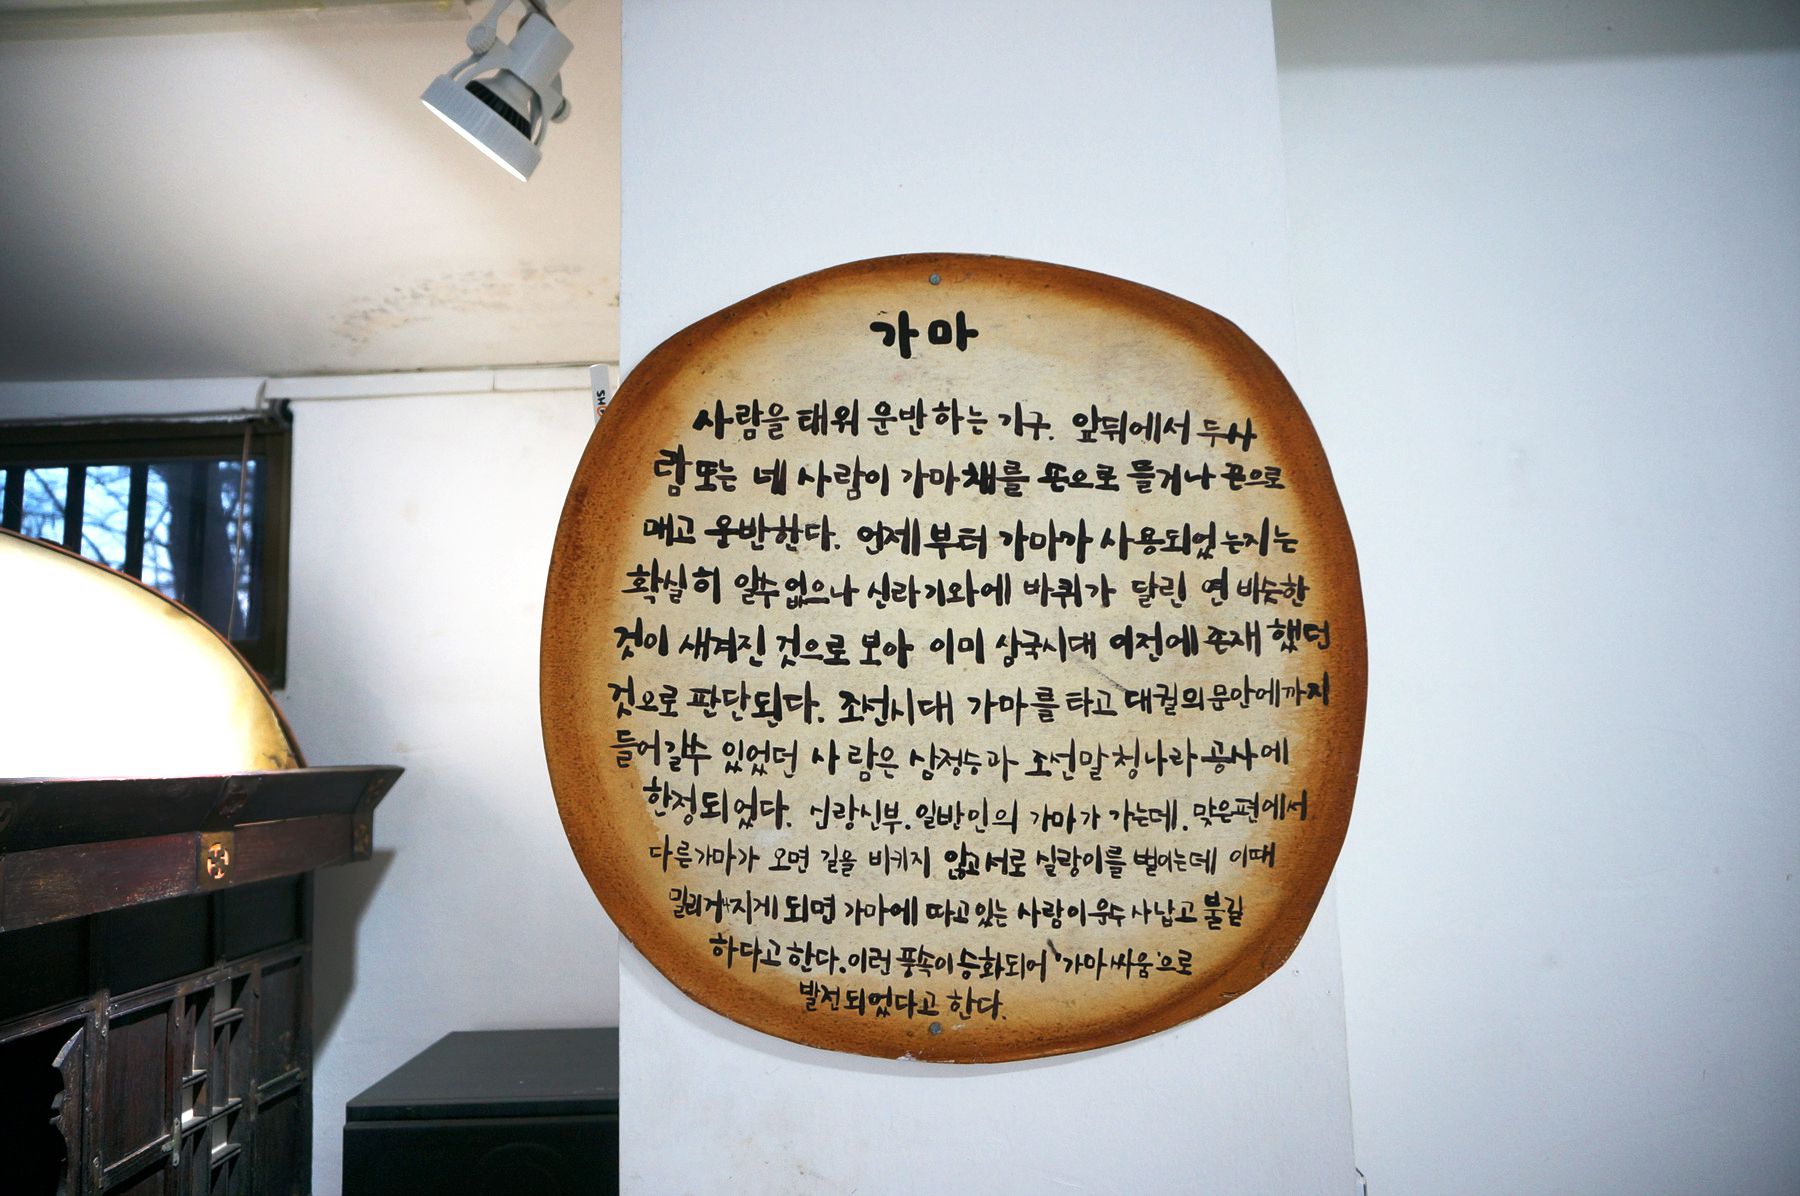 가마
사람을 태워 운반하는 기구. 앞뒤에서 두사
람 또는 네 사람이 가마채를 손으로 들거나 끈으로
매고 운반한다. 언제부터 가마가 사용되었는지는
확실히 알수없으나 신라기와에 바퀴가 달린 연 비슷한
것이 새겨진 것으로 보아 이미 삼국시대 이전에 존재했던
것으로 판단된다. 조선시대 가마를 타고 대궐의 문안에까지
들어갈수 있었던 사람은 삼정승과 조선말 청나라 공사에
한정되었다. 신랑신부. 일반인의 가마가 가는데. 맞은편에서
다른가마가 오면 길을 비키지 않고 서로 실랑이를 벌이는데 이때
밀리거나 지게 되면 가마에 따고있는 사람이 운수 사납고 불길
하다고 한다. 이런 풍속이 승화되어 '가마싸움'으로
발전되었다고 한다.